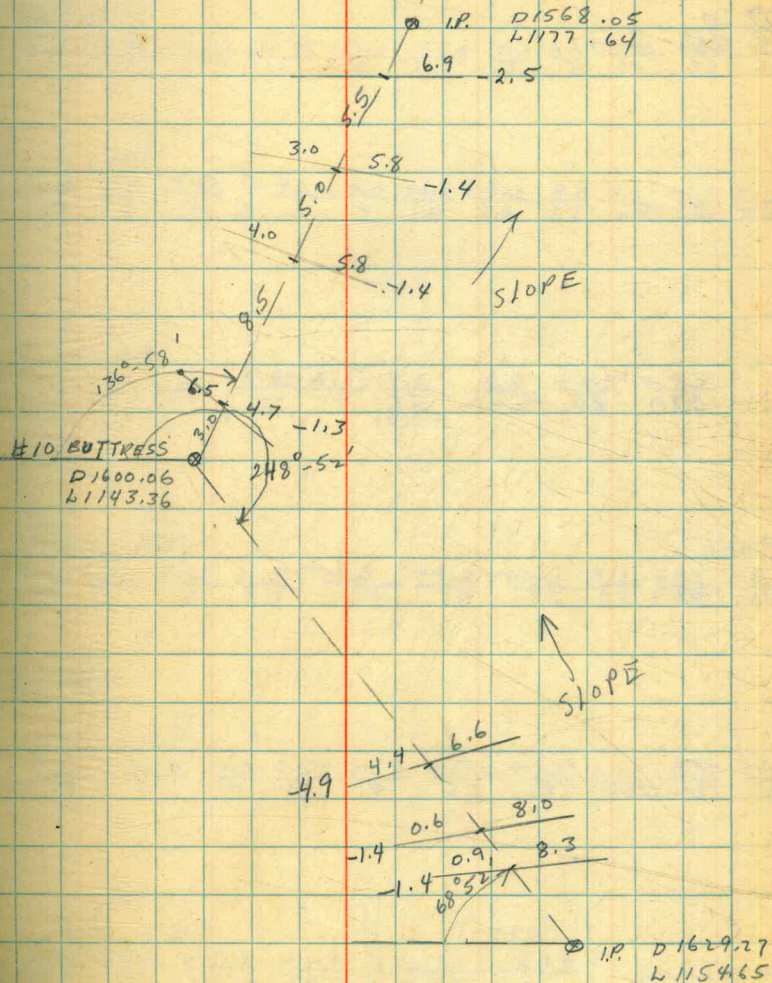 I.P. D1568.05
L1177.64
6.9 -2.5
5.5
3.0 5.8 -1.4
5.0
4.0 5.8 -1.4
SLOPE
8.5
136°-58'
6.5
4.7 -1.3
3.0
#10 BUTTRESS
248°-52'
D1600.06
L1143.36
SLOPE
4.4 6.6
-4.9
0.6 8.0
-1.4
0.9 8.3
-1.4
68°52'
I.P. D1629.27
L1154.65